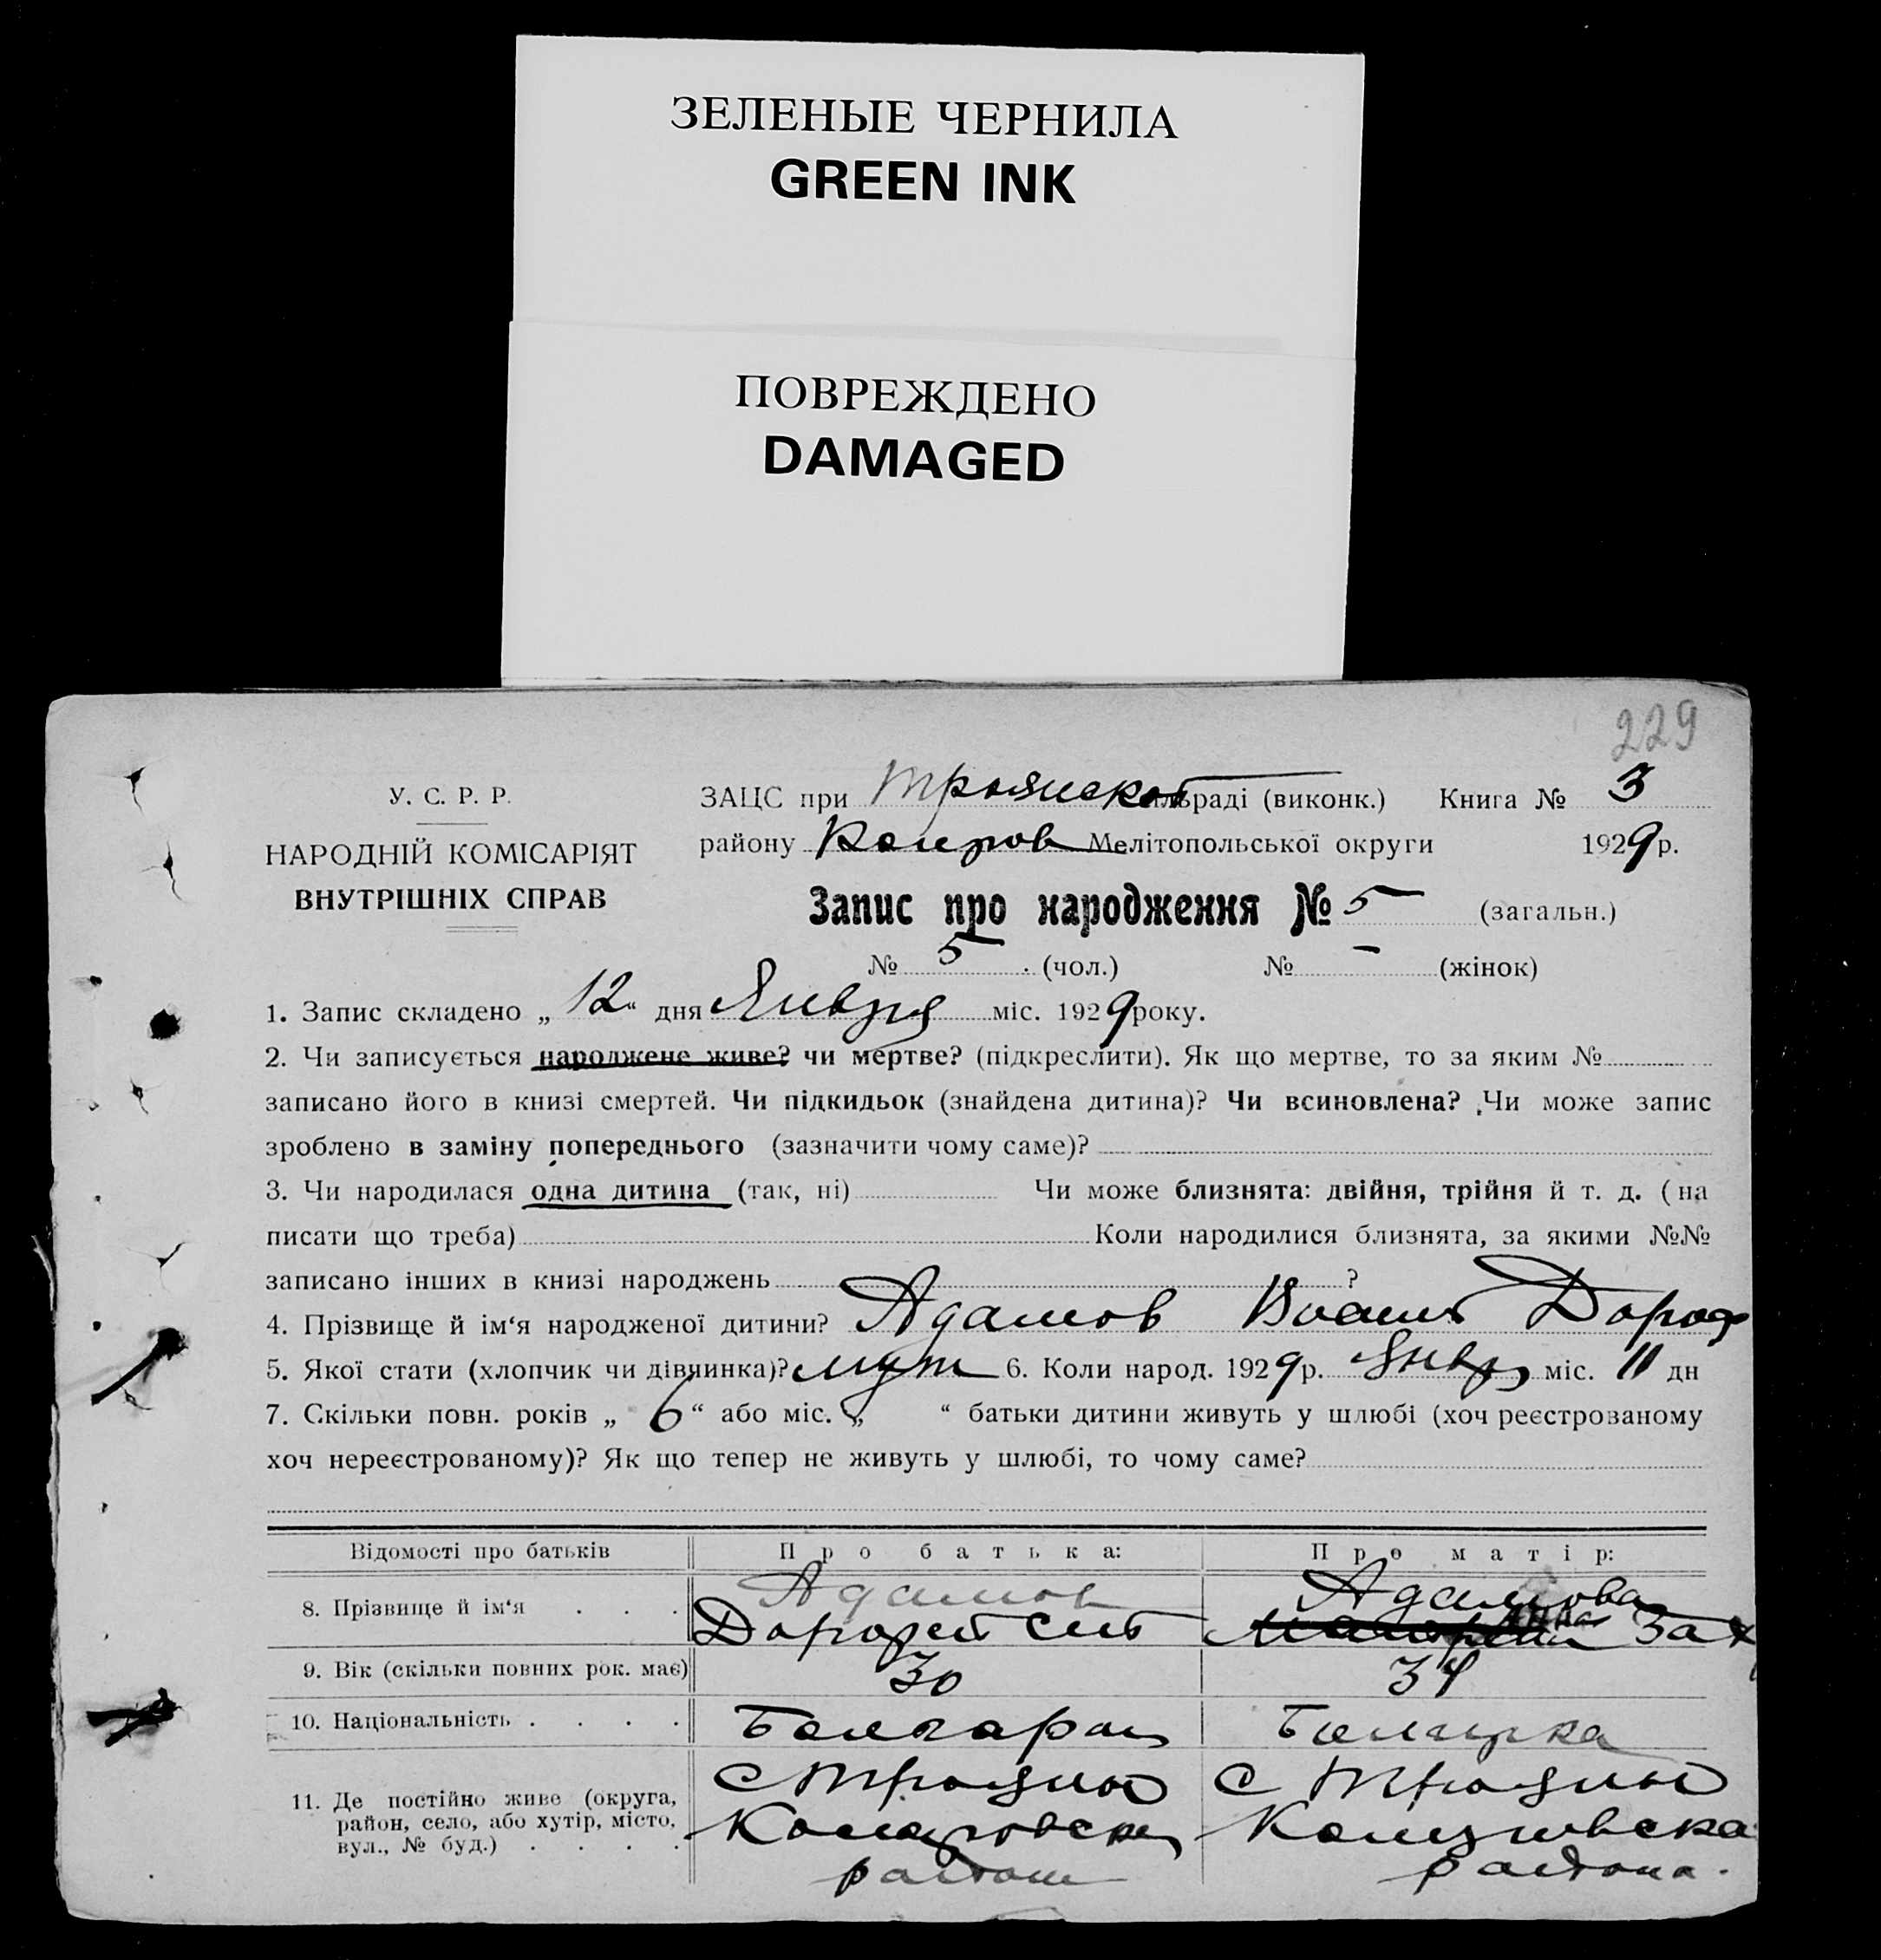 ЗЕЛЕНЫЕ ЧЕРНИЛА
GREEN INK
ПОВРЕЖДЕНО
DAMAGED
229
У. С. Р. Р.
НАРОДНІЙ КОМІСАРІЯТ
ВНУТРІШНІХ СПРАВ
ЗАЦС при Троянской сільраді (виконк.) Книга № 3
району Мелітопольської округи 1929 р.
Запис про народження № 5 (загальн.)
№ 5 (чол.) № – (жінок)
1. Запис складено „ 12 “ дня Января міс. 1929 року.
2. Чи записується народжене живе? чи мертве? (підкреслити). Як що мертве, то за яким №
записано його в книзі смертей. Чи підкидьок (знайдена дитина)? Чи всиновлена? Чи може запис
зроблено в заміну попереднього (зазначити чому саме)?
3. Чи народилася одна дитина (так, ні) Чи може близнята: двійня, трійня й т. д. (на
писати що треба) Коли народилися близнята, за якими №№
записано інших в книзі народжень ?
4. Прізвище й ім‘я народженої дитини? Адамов Дороф
5. Якої стати (хлопчик чи дівчинка)? муж 6. Коли народ. 1929 р. Янвр міс. 11 дн
7. Скільки повн. років „ 6 “ або міс. „ “ батьки дитини живуть у шлюбі (хоч реєстрованому
хоч нереєстрованому)? Як що тепер не живуть у шлюбі, то чому саме?
Відомості про батьків Про батька: Про матір:
8. Прізвище й ім‘я . . . Адамов Адамова
Дорофей Зах
9. Вік (скільки повних рок. має) 30 34
10. Національність . . . . Болгарин Болгарка
11. Де постійно живе (округа, С Трояны С Трояны
район, село, або хутір, місто,
вул., № буд.) . . . . района района